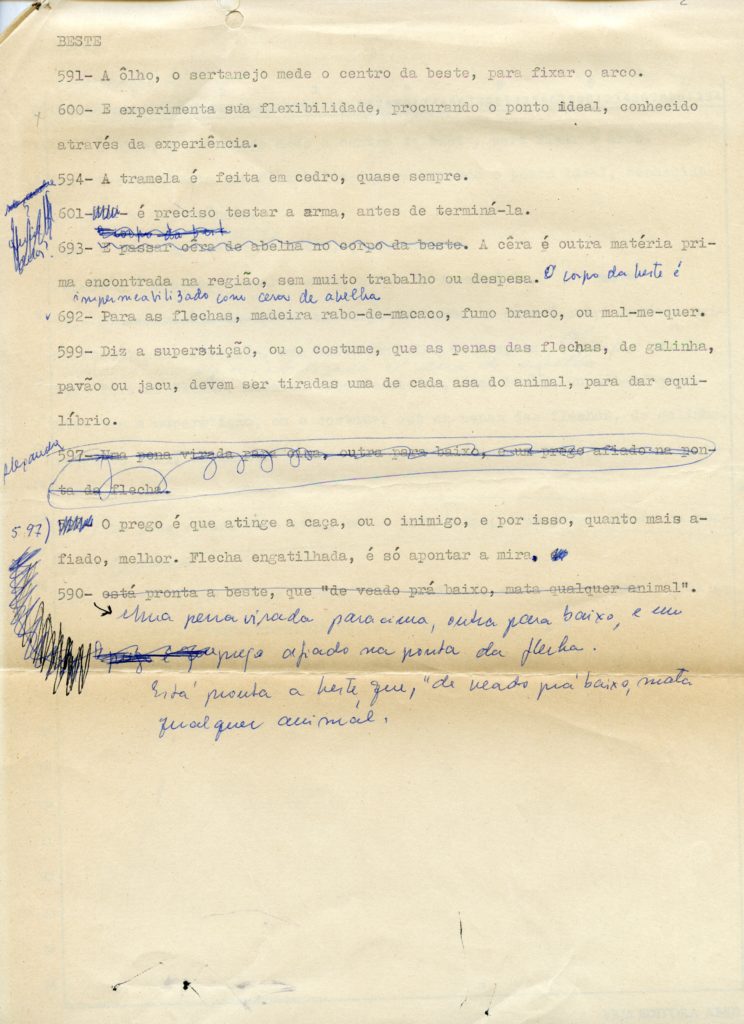 BESTE
591- A ôlho, o sertanejo mede o centro da beste, para fixar o arco.
600- E experimenta sua flexibilidade, procurando o ponto ideal, conhecido
através da experiência.
594- A tramela é feita em cedro, quase sempre.
601- é preciso testar a arma, antes de terminá-la.
o corpo da best
693- E passar cêra de abelha no corpo da beste. A cêra é outra matéria pri-
ma encontrada na região, sem muito trabalho ou despesa. O corpo da beste é
impermeabilizado com cera de abelha
692- Para as flechas, madeira rabo-de-macaco, fumo branco, ou mal-me-quer.
599- Diz a superstição, ou o costume, que as penas das flechas, de galinha,
pavão ou jacu, devem ser tiradas uma de cada asa do animal, para dar equi-
líbrio.
597- Uma pena virada para cima, outra para baixo, e um prego afiado na pon-
ta da flecha.
597) O prego é que atinge a caça, ou o inimigo, e por isso, quanto mais a-
fiado, melhor. Flecha engatilhada, é só apontar a mira.
590- está pronta a beste, que "de veado prá baixo, mata qualquer animal".
Uma pena virada para cima, outra para baixo, e um
prego afiado na ponta da flecha.
Está pronta a beste, que, "de veado prá baixo, mata
qualquer animal.